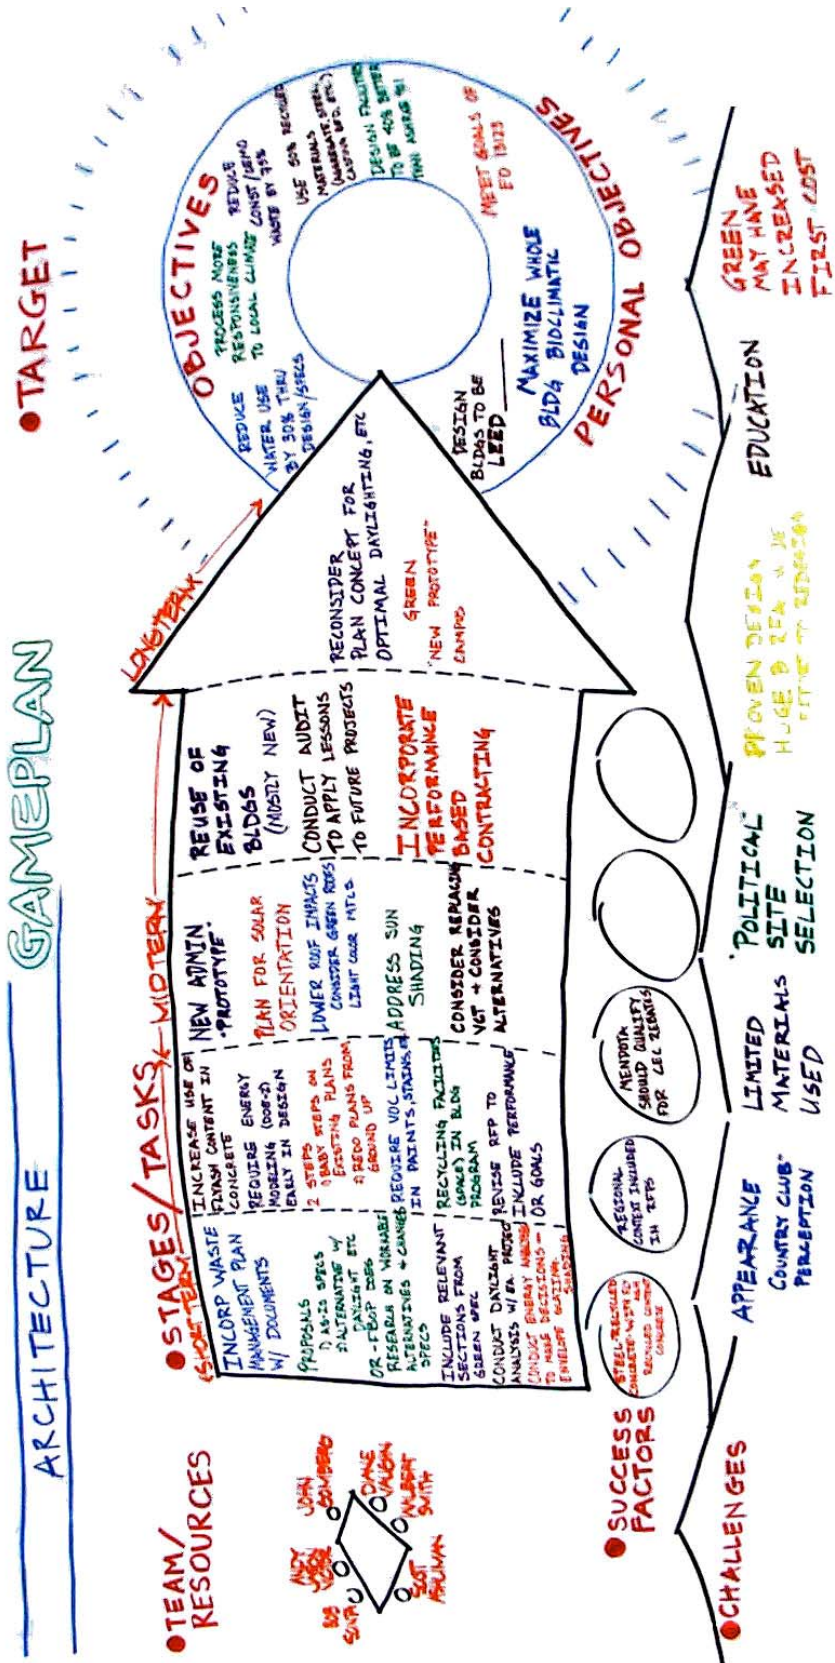 ARCHITECTURE
GAMEPLAN
TEAM/
RESOURCES
JOHN
BOMBERG
DIANE
VAUGHN
WILBERT
SMITH
BOB
STAGES/TASKS
(SHORT TERM
MIDTERM
LONGTERM
INCORP WASTE
MANAGEMENT PLAN
W/ DOCUMENTS
PROPOSALS
1) AS-IS SPECS
2) ALTERNATIVE W/
DAYLIGHT ETC
OR - FBOP DOES
RESEARCH ON WORKABLE
ALTERNATIVES + CHANGES
SPECS
INCLUDE RELEVANT
SECTIONS FROM
GREEN SPEC
CONDUCT DAYLIGHT
ANALYSIS W/ EA. PROJECT
CONDUCT ENERGY ANALYSIS
TO MAKE DECISIONS -
ENVELOPE GLAZING
SHADING
INCREASE USE OF
FLYASH CONTENT IN
CONCRETE
REQUIRE ENERGY
MODELING (DOE-2)
EARLY IN DESIGN
2 STEPS ON
1) BABY STEPS ON
EXISTING PLANS
2) REDO PLANS FROM
GROUND UP
REQUIRE VOC LIMITS
IN PAINTS, STAINS,
RECYCLING FACILITIES
(SPACE) IN BLDG
PROGRAM
REVISE RFP TO
INCLUDE PERFORMANCE
OR GOALS
NEW ADMIN
"PROTOTYPE"
PLAN FOR SOLAR
ORIENTATION
LOWER ROOF IMPACTS
CONSIDER GREEN ROOFS
LIGHT COLOR MTLS
ADDRESS SUN
SHADING
CONSIDER REPLACING
VCT + CONSIDER
ALTERNATIVES
REUSE OF
EXISTING
BLDGS
(MOSTLY NEW)
CONDUCT AUDIT
TO APPLY LESSONS
TO FUTURE PROJECTS
INCORPORATE
PERFORMANCE
BASED
CONTRACTING
RECONSIDER
PLAN CONCEPT FOR
OPTIMAL DAYLIGHTING, ETC
GREEN
"NEW PROTOTYPE"
CAMPUS
TARGET
OBJECTIVES
REDUCE
WATER USE
BY 30% THRU
DESIGN/SPECS
PROCESS MORE
RESPONSIVENESS
TO LOCAL CLIMATE
REDUCE
CONST/DEMO
WASTE BY 75%
USE 50% RECYCLED
MATERIALS
(AGGREGATE, STEEL,
ETC)
DESIGN FACILITIES
TO BE 40% BETTER
THAN ASHRAE 90.1
MEET GOALS OF
EO 13123
MAXIMIZE WHOLE
BLDG BIOCLIMATIC
DESIGN
DESIGN
BLDGS TO BE
LEED
PERSONAL OBJECTIVES
SUCCESS
FACTORS
STEEL-RECYCLED
RECYCLED CONTENT
CONCRETE
REGIONAL
CONTEXT INCLUDED
IN RFPS
MENDOTA
SHOULD QUALIFY
FOR CEC REBATES
CHALLENGES
APPEARANCE
"COUNTRY CLUB"
PERCEPTION
LIMITED
MATERIALS
USED
"POLITICAL"
SITE
SELECTION
PROVEN DESIGN
EDUCATION
GREEN
MAY HAVE
INCREASED
FIRST COST